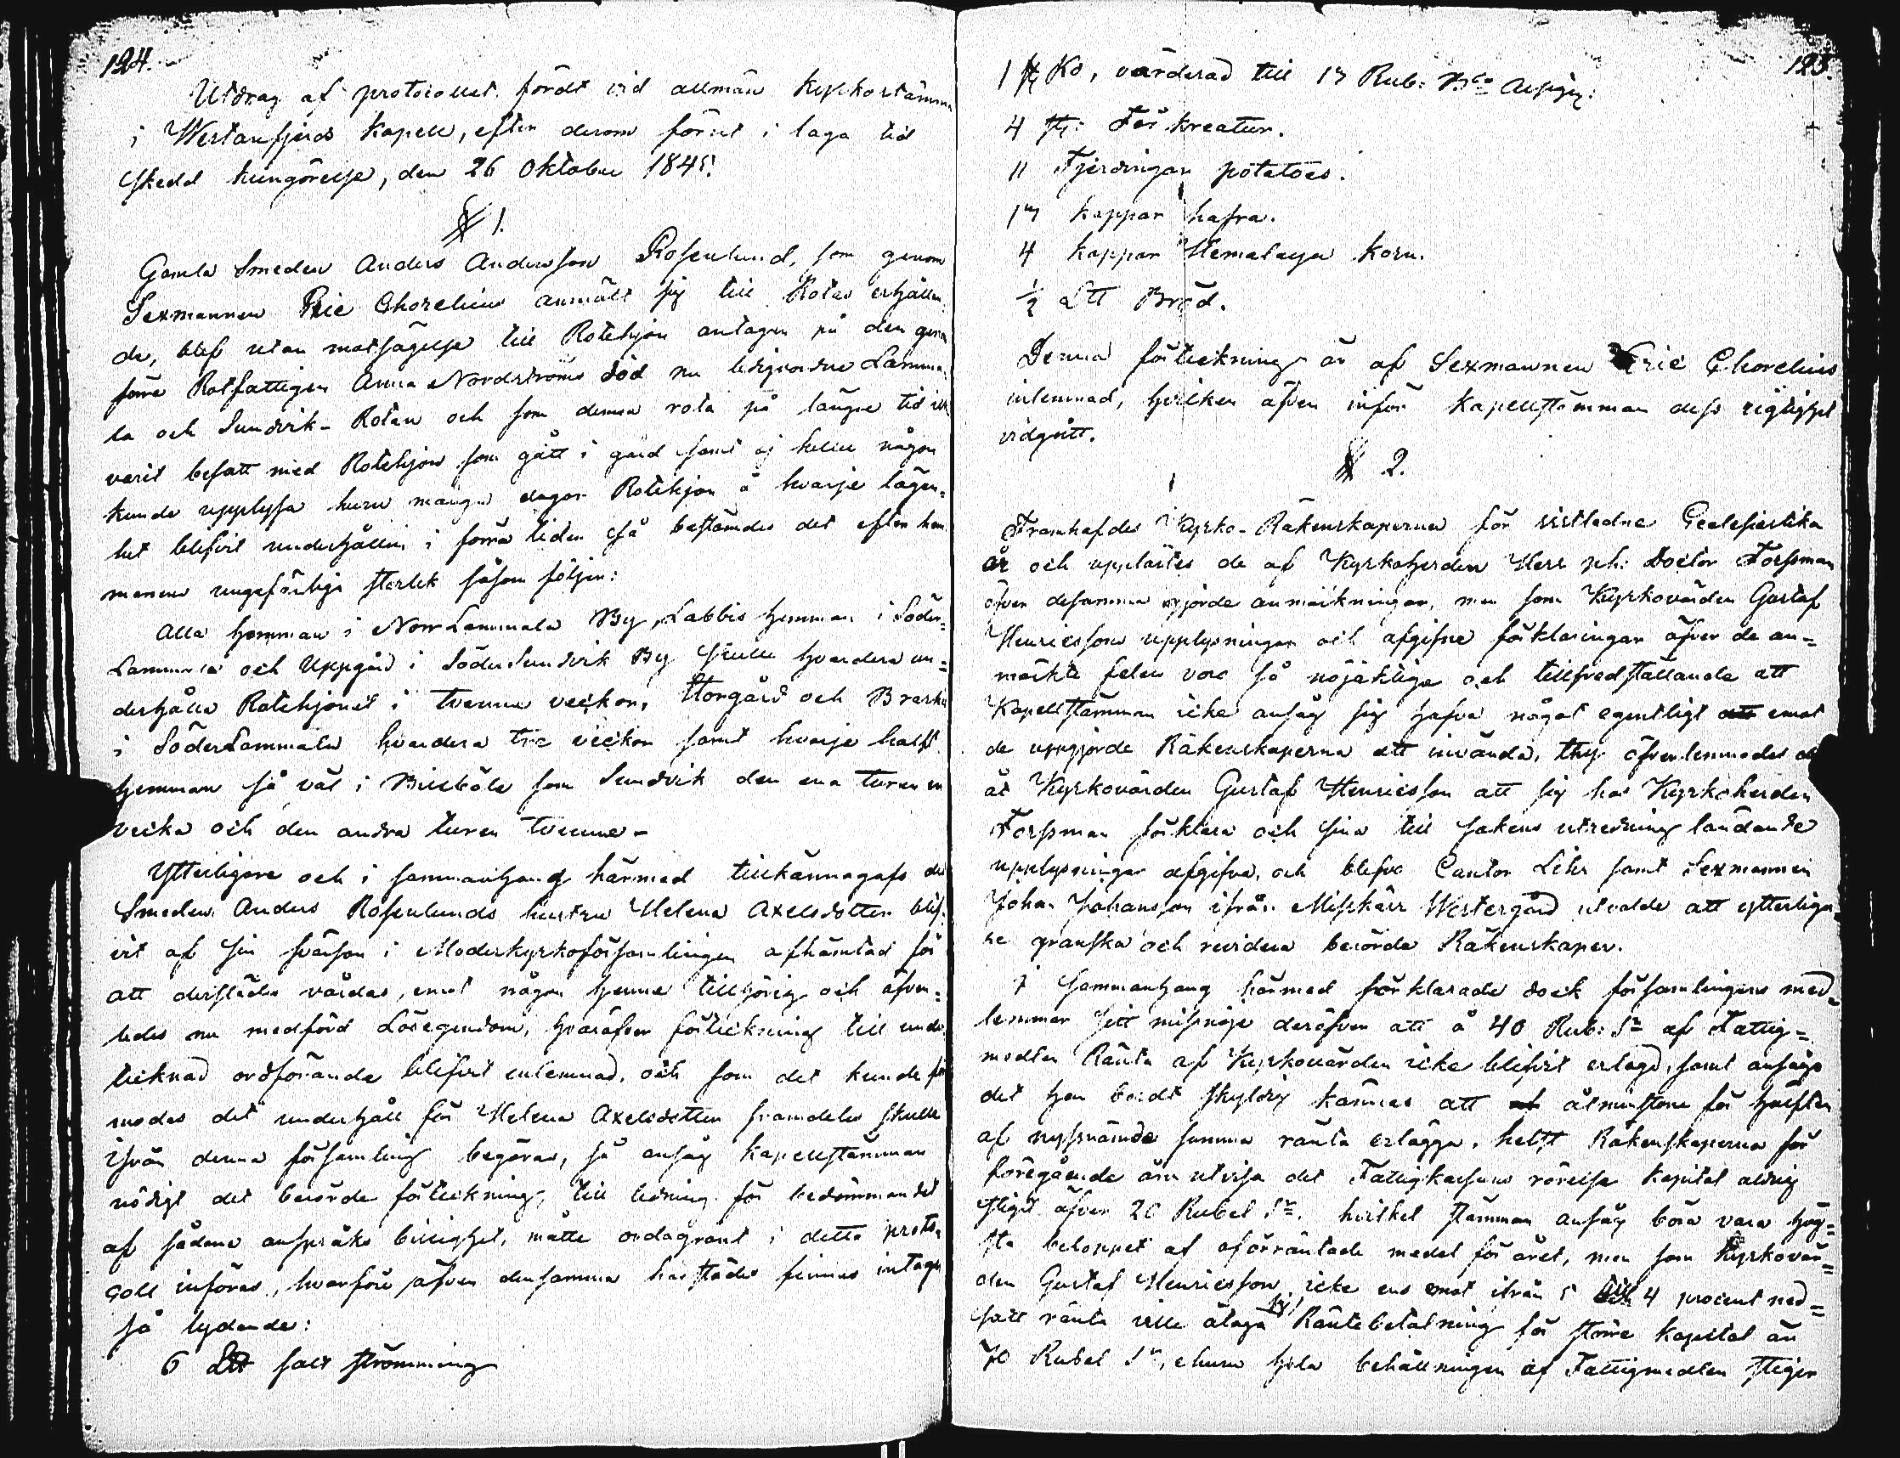 124.
Utdrag af protocollet fördt vid allmän Kyrkostämma
i Westanfjerds Kapell, efter derom förut i laga tid
skedd kungörelse, den 26 Oktober 1845.
§ 1.
Gamla Smeden Anders Andersson Rosenlund, som genom
Sexmannen Eric Chorelius anmält sig till Rotes erhållan
de, blef utan motsägelse till Rotehjon antagen på den genom
förre Rotfattigen Anna Nordströms död nu ledigvordne Lamma
la och Sundvik-Rotan och som denna rota på längre tid icke
varit befatt med Rotehjon som gått i gård samt ej heller någon
kunde upplysa huru många dagar Rotehjon å hvarje lägen-
het blifvit underhållen i förra tiden så bestämdes det efter hem
manens ungefärliga storlek såsom följer:
Alla hemman i Norr Lammala By, Labbis hemman i Söder-
Lammala och Uppgård i Söder Sundvik By skulle hvardera un=
derhålla Rotehjonet i tvenne veckor, Storgård och Braskis
i Söder Lammala hvardera tre veckor samt hvarje halft
hemman så väl i Brusböle som Sundvik den ena turen en
vecka och den andra turen tvenne-
Ytterligare och i sammanhang härmed tillkännagafs det
Smeden Anders Rosenlunds hustru Helena Axelsdotter blif-
vit af sin svärson i Moderkyrkoförsamlingen afhämtad för
att derstädes vårdas, emot någon henne tillhörig och äfven=
ledes nu medförd Lösegendom, hvaröfver förteckning till under
tecknad ordförande blifvit inlemnad, och som det kunde för
modas det underhåll för Helena Axelsdotter framdeles skulle
ifrån denna församling begäras, så ansåg kapellstämman
nödigt det berörde förteckning, till ledning för bedömmandet
af sådana anspråks billighet, måtte ordagrant i detta proto-
coll införas, hvarföre äfven densamma härstädes finnes intagen
så lydande:
6 LU salt strömming
125.
1 st Ko, värderad till 17 Rub: Bco Assign:
4 st: Får kreatur.
11 Fjerdingar potatoes.
17 kappar hafra.
4 kappar Hemalaya korn.
½ LU Bröd.
Denna förteckning är af Sexmannen Eric Chorelius
inlemnad, hvilken äfven inför kapellstämman dess rigtighet
vidgått.
§ 2.
Framhafdes Kyrko-Räkenskaperna för sistledne Ecclesiastika
år och upplästes de af Kyrkoherden Herr ph: Doctor Forssman
öfver desamma gjorde anmärkningar, men som Kyrkovärden Gustaf
Henricssons upplysningar och afgifne förklaringar öfver de an=
märkte felen voro så nöjaktiga och tillfredställande att
Kapellstämman icke ansåg sig hafva något egentligt emot
de uppgjorde Räkenskaperna att invända, thy öfverlemnades det
åt Kyrkovärden Gustaf Henricsson att sig hos Kyrkoherden
Forssman förklara och sina till sakens utredning ländande
upplysningar afgifva, och blefvo Cantor Lihr samt Sexmannen
Johan Johansson ifrån Misskärr Westergård utvalde att ytterliga=
re granska och revidera berörde Räkenskaper.
I Sammanhang härmed förklarade dock församlingens med=
lemmar sitt missnöje deröfver att å 40 Rub: Sr af Fattig=
medlen Ränta af Kyrkovärden icke blifvit erlagd, samt ansågs
det han bordt skyldig kännas att åtminstone för hälften
af nyssnämde summa ränta erlägga, helst Räkenskaperna för
föregående åren utvisa det Fattigkassans rörelse kapital aldrig
stigit öfver 20 Rubel Sr. hvilket stämman ansåg böra vara hög=
sta beloppet af oförräntade medel för året, men som Kyrkovär=
den Gustaf Henricsson icke ens emot ifrån 5 till 4 procent ned=
satt ränta ville åtaga sig Räntebetalning för större kapital än
70 Rubel Sr, ehuru hela behållningen af Fattigmedlen stiger